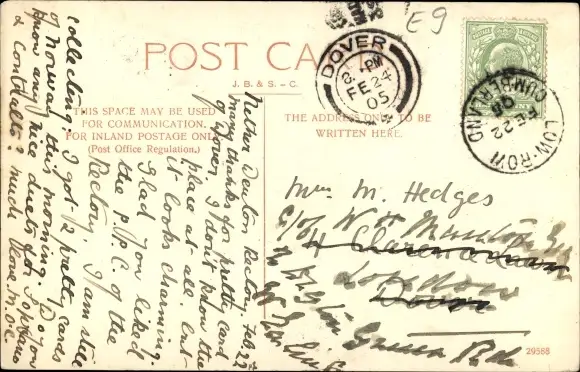 E9
POST CARD
J. B. & S. – C.
DOVER
PM
FE 24
05
LOW-ROW
FE 22
05
CUMBERLAND
THIS SPACE MAY BE USED
FOR COMMUNICATION.
FOR INLAND POSTAGE ONLY
(Post Office Regulation.)
THE ADDRESS ONLY TO BE
WRITTEN HERE.
Nether Denton Rectory. Feb 22nd
Many thanks for pretty card
of Dover. I don't know the
place at all but
it looks charming.
Glad you liked
the p.p.c of the
Rectory. I am still
collecting. I got 12 pretty cards
of Norway this morning. Do you
know any nice duets for 2 Sopranos
& Contralto? Much love. M.D.C.
Mrs M. Hedges
c/o W H
4 Claremont
London
Dover
Brighton
Grena Rd
29568